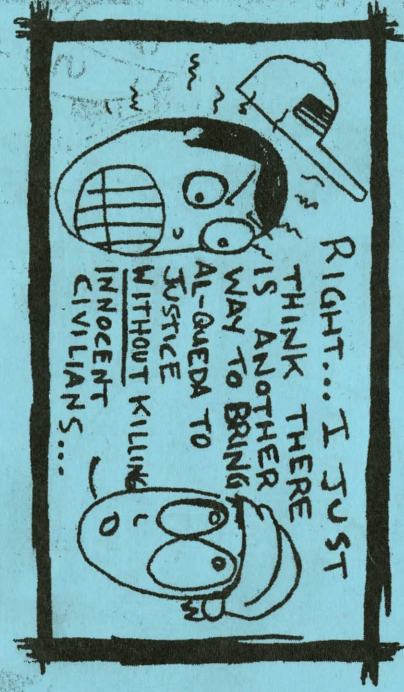 RIGHT... I JUST
THINK THERE
IS ANOTHER
WAY TO BRING
AL-QUEDA TO
JUSTICE
WITHOUT KILLING
INNOCENT
CIVILIANS...